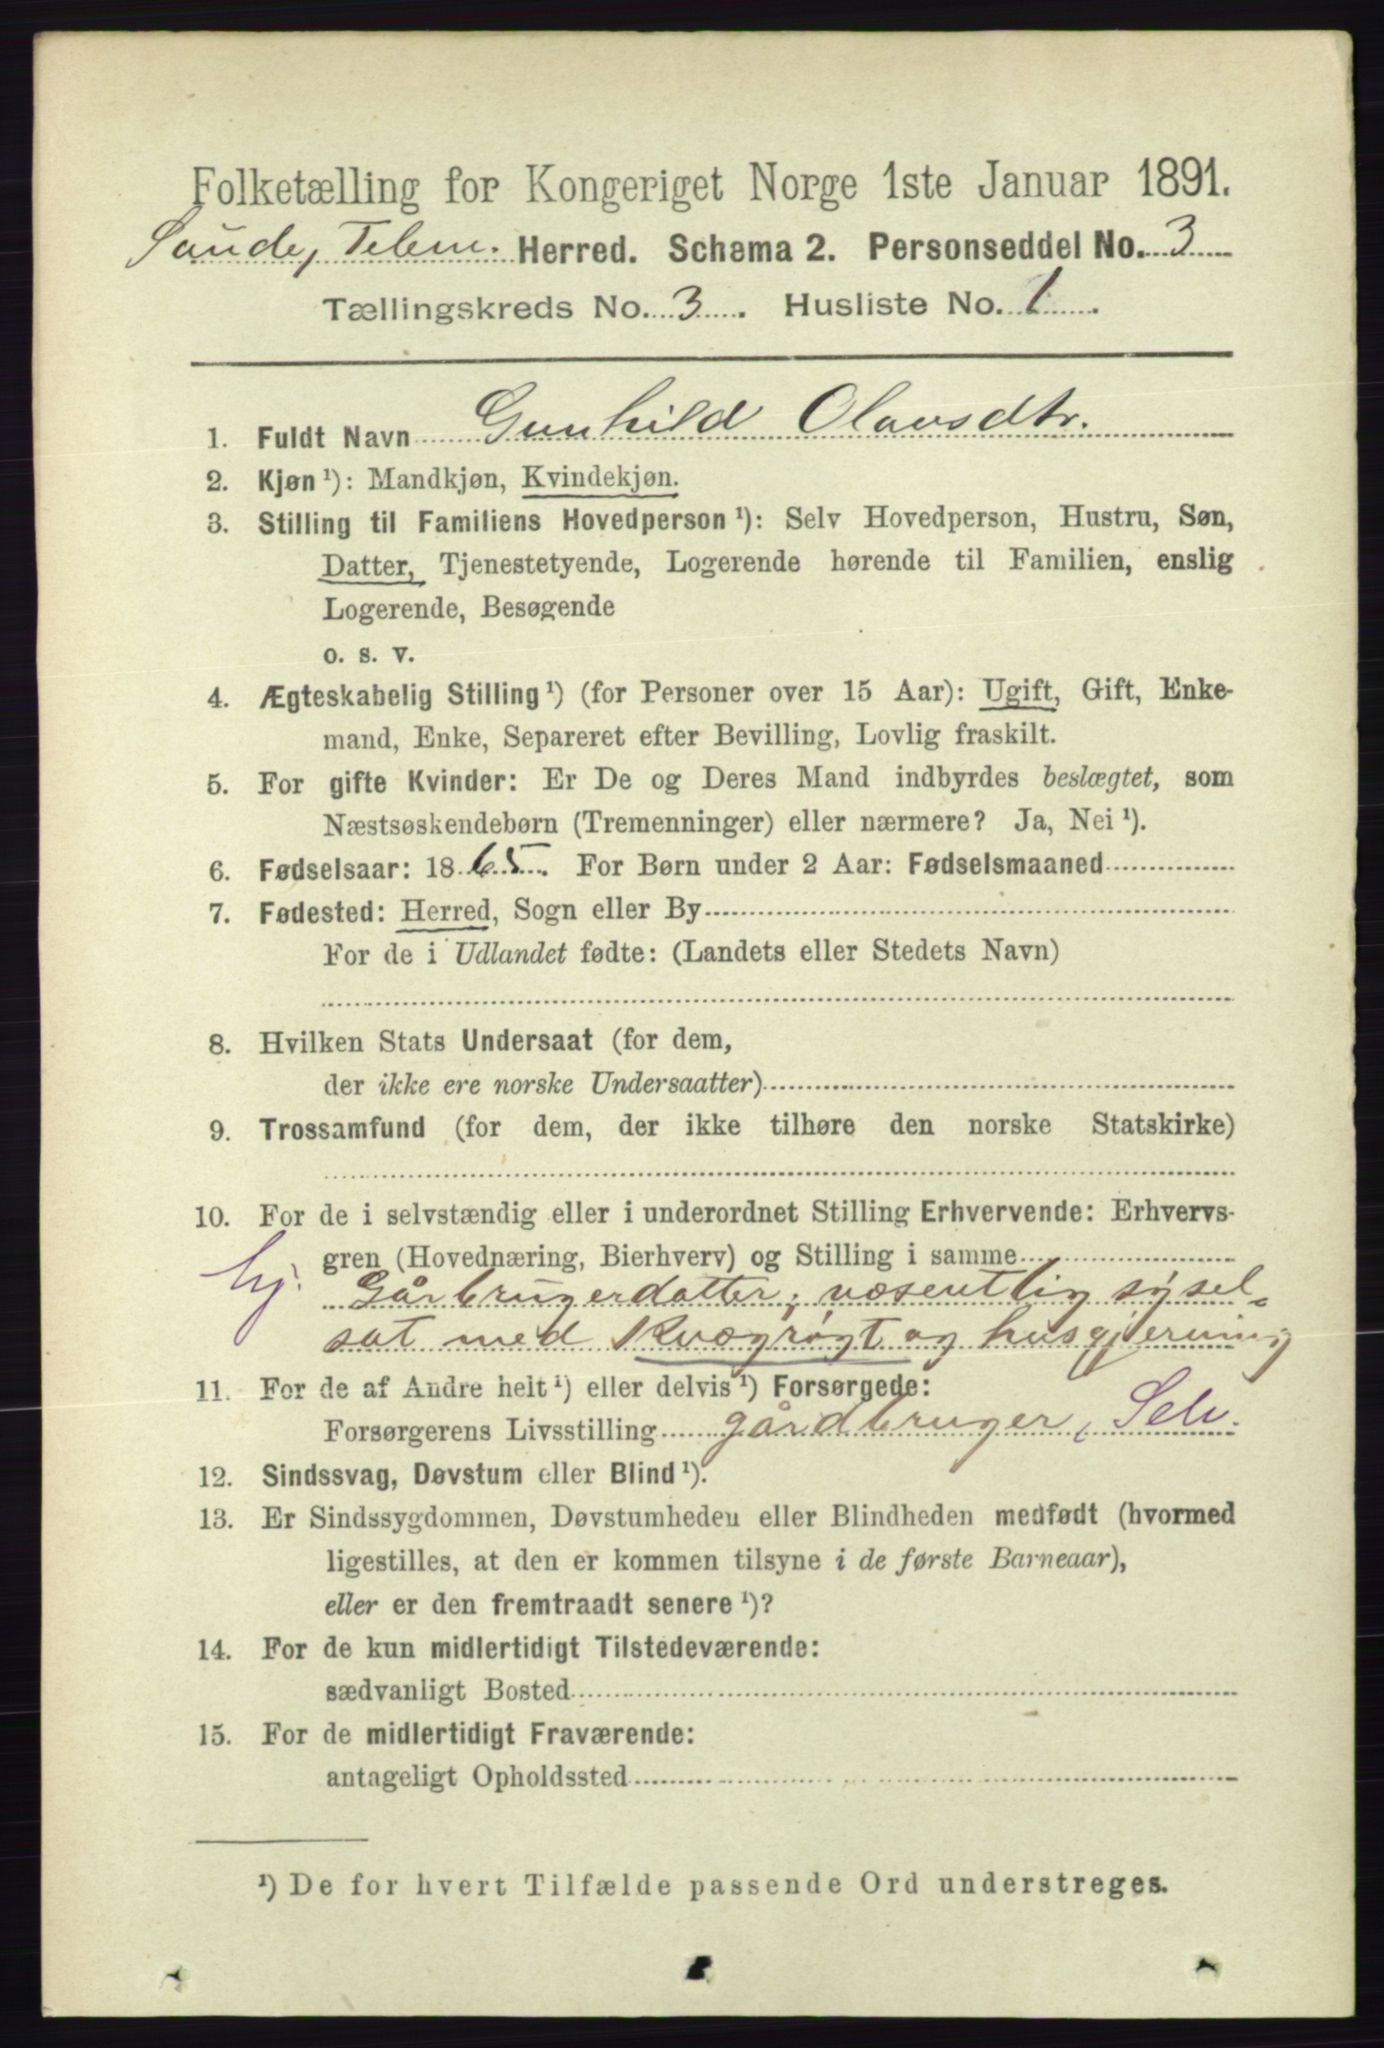 Folketælling for Kongeriget Norge 1ste Januar 1891.
Saude, Telem. Herred. Schema 2. Personseddel No. 3
Tællingskreds No. 3. Husliste No. 1.
1. Fuldt Navn Gunhild Olavsdtr.
2. Kjøn ¹): Mandkjøn, Kvindekjøn.
3. Stilling til Familiens Hovedperson ¹): Selv Hovedperson, Hustru, Søn,
Datter, Tjenestetyende, Logerende hørende til Familien, enslig
Logerende, Besøgende
o. s. v.
4. Ægteskabelig Stilling ¹) (for Personer over 15 Aar): Ugift, Gift, Enke-
mand, Enke, Separeret efter Bevilling, Lovlig fraskilt.
5. For gifte Kvinder: Er De og Deres Mand indbyrdes beslægtet, som
Næstsøskendebørn (Tremenninger) eller nærmere? Ja, Nei ¹).
6. Fødselsaar: 1865. For Børn under 2 Aar: Fødselsmaaned
7. Fødested: Herred, Sogn eller By
For de i Udlandet fødte: (Landets eller Stedets Navn)
8. Hvilken Stats Undersaat (for dem,
der ikke ere norske Undersaatter)
9. Trossamfund (for dem, der ikke tilhøre den norske Statskirke)
10. For de i selvstændig eller i underordnet Stilling Erhvervende: Erhvervs-
gren (Hovednæring, Bierhverv) og Stilling i samme
hj. Gårbrugerdatter; væsentlig sysel-
sat med Kvægrøgt og husgjerning
11. For de af Andre helt ¹) eller delvis ¹) Forsørgede:
Forsørgerens Livsstilling gårdbruger, Selv.
12. Sindssvag, Døvstum eller Blind ¹).
13. Er Sindssygdommen, Døvstumheden eller Blindheden medfødt (hvormed
ligestilles, at den er kommen tilsyne i de første Barneaar),
eller er den fremtraadt senere ¹)?
14. For de kun midlertidigt Tilstedeværende:
sædvanligt Bosted
15. For de midlertidigt Fraværende:
antageligt Opholdssted
¹) De for hvert Tilfælde passende Ord understreges.